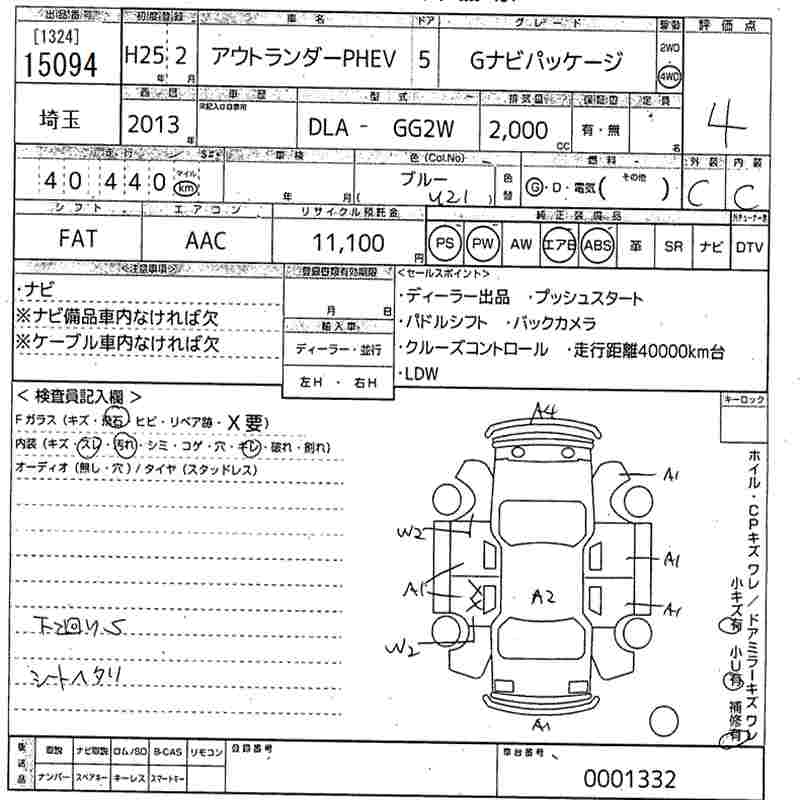 出品番号 初度登録 車名 ドア グレード 駆動 評価点
[1324]
15094 H25年 2月 アウトランダーPHEV 5 Gナビパッケージ 2WD 4WD 4
西暦 車歴 型式 排気量 保証書 定員
埼玉 2013年 DLA - GG2W 2,000cc 有・無 名
走行 車検 色(Col.No) 燃料 外装 内装
40,440 マイル km 年 月 ブルー ( U21 ) 色替 G・D・電気( その他 ) C C
シフト エアコン リサイクル預託金 純正装備品
FAT AAC 11,100円 PS PW AW エアB ABS 革 SR ナビ DTV
<注意事項> 登録書類有効期限 <セールスポイント>
・ナビ 月 日 ・ディーラー出品 ・プッシュスタート
※ナビ備品車内なければ欠 輸入車 ・パドルシフト ・バックカメラ
※ケーブル車内なければ欠 ディーラー・並行 ・クルーズコントロール ・走行距離40000km台
左H ・ 右H ・LDW
<検査員記入欄> キーロック
Fガラス(キズ・飛石・ヒビ・リペア跡・X要)
内装(キズ・スレ・汚れ・シミ・コゲ・穴・キレ・破れ・剥れ)
オーディオ(無し・穴)/タイヤ(スタッドレス)
A4
A1
W2
A1
A1
A2
A1
W2
A1
下回りS
シートヘタリ
ホイル・CPキズ ワレ/ドアミラーキズ ワレ
小キズ有 小U有 補修有
取説 ナビ取説 ロム/SD B-CAS リモコン 登録番号 車台番号
ナンバー スペアキー キーレス スマートキー 0001332